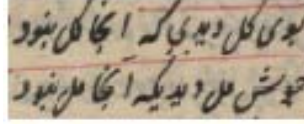 بوی گل دیدی که آنجا گل نبود
جوشش مل دیدیکه آنجا مل نبود